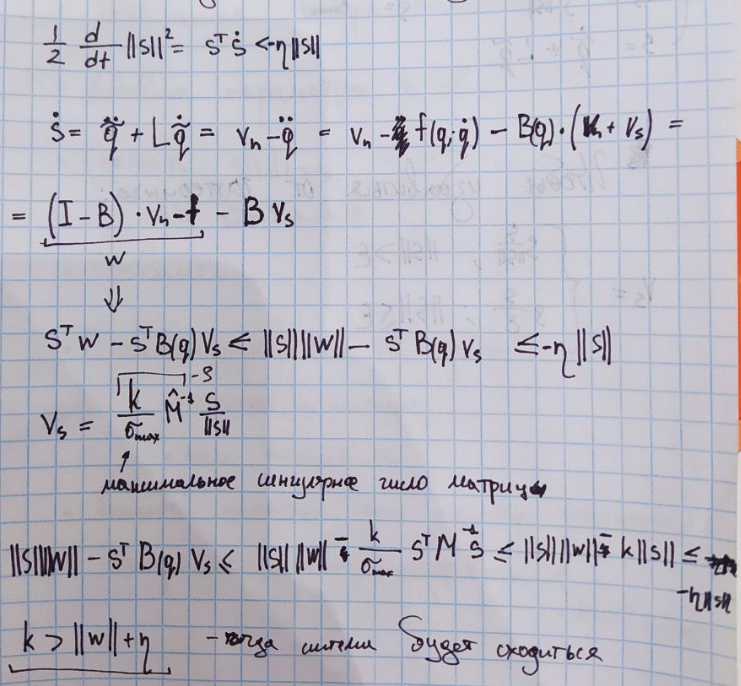 1/2 d/dt ||s||² = sᵀṡ < -η||s||
ṡ = q̃̈ + Lq̃̇ = vₙ - q̈ = vₙ - f(q, q̇) - B(q)·(vₙ + vₛ) =
= (I - B)·vₙ - f - B vₛ
w
⇓
sᵀw - sᵀB(q)vₛ ≤ ||s|| ||w|| - sᵀB(q)vₛ ≤ -η||s||
vₛ = k/σmax M̂⁻¹ s/||s||
максимальное сингулярное число матрицы
||s||||w|| - sᵀB(q)vₛ ≤ ||s|| ||w|| - k/σmax sᵀM⁻¹s ≤ ||s|| ||w|| - k||s|| ≤
-η||s||
k > ||w|| + η - тогда система будет сходиться